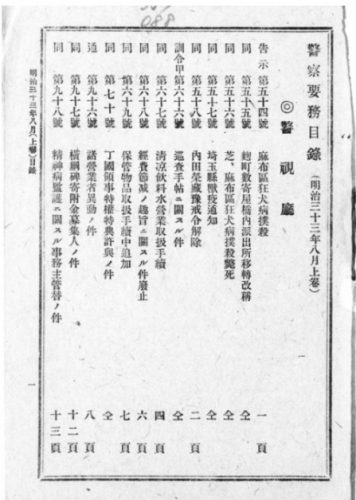 088
警察要務目錄(明治三十三年八月上卷)
◎警視廳
告示第五十四號 麻布區狂犬病撲殺 一頁
同 第五十五號 麴町數寄屋橋內派出所移轉改稱 仝
同 第五十六號 芝、麻布區狂犬病撲殺斃死 仝
同 第五十七號 埼玉縣獸疫通知 仝
同 第五十八號 內田榮藏豫戒令解除 二頁
訓令甲第六十六號 巡査手帖ニ關スル件 仝
同 第六十七號 淸凉飮料水營業取扱手續 四頁
同 第六十八號 經費節減ノ趣旨ニ關スル件廢止 六頁
同 第六十九號 保管物品取扱手續中追加 七頁
同 第七十號 丁國領事特權特典許與ノ件 仝
通 第九十六號 諸營業者異動ノ件 八頁
同 第九十七號 橫綱碑寄附金募集人ノ件 十二頁
同 第九十八號 精神病監護ニ關スル事務主管替ノ件 十三頁
明治三十三年八月(上卷)目錄
一